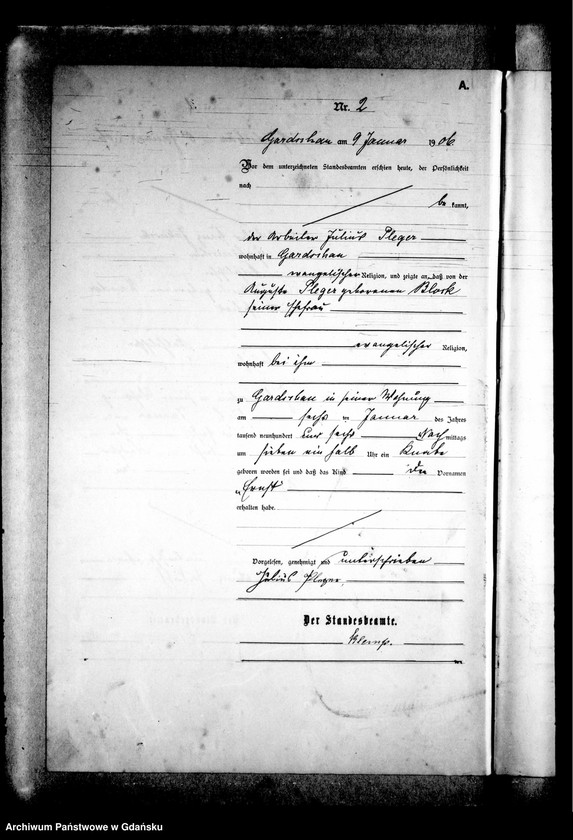 A.
Nr. 2
Gardoschau am 9 Januar 1906.
Vor dem unterzeichneten Standesbeamten erschien heute, der Persönlichkeit
nach
be kannt,
der Arbeiter Julius Pleger
wohnhaft in Gardoschau
evangelischer Religion, und zeigte an, daß von der
Auguste Pleger geborenen Block
seiner Ehefrau
evangelischer Religion,
wohnhaft bei ihm
zu Gardoschau in seiner Wohnung
am sechs ten Januar des Jahres
tausend neunhundert und sechs Nach mittags
um sieben ein halb Uhr ein Knabe
geboren worden sei und daß das Kind den Vornamen
Ernst
erhalten habe.
Vorgelesen, genehmigt und unterschrieben
Julius Pleger.
Der Standesbeamte.
Archiwum Państwowe w Gdańsku